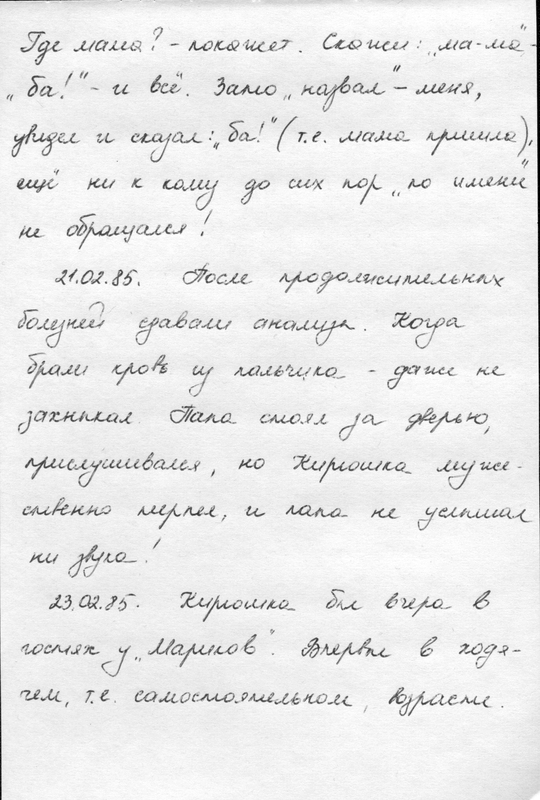 Где мама? - покажет. Скажи: „ма-ма" -
„ба!" - и всё. Зато „назвал" - меня,
увидел и сказал: „ба!" (т.е. мама пришла),
ещё ни к кому до сих пор „по имени"
не обращался!
21.02.85. После продолжительных
болезней сдавали анализы. Когда
брали кровь из пальчика - даже не
захныкал. Папа стоял за дверью,
прислушивался, но Кирюшка муже-
ственно терпел, и папа не услышал
ни звука!
23.02.85. Кирюшка был вчера в
гостях у „Мариков". Впервые в ходя-
чем, т.е. самостоятельном, возрасте.